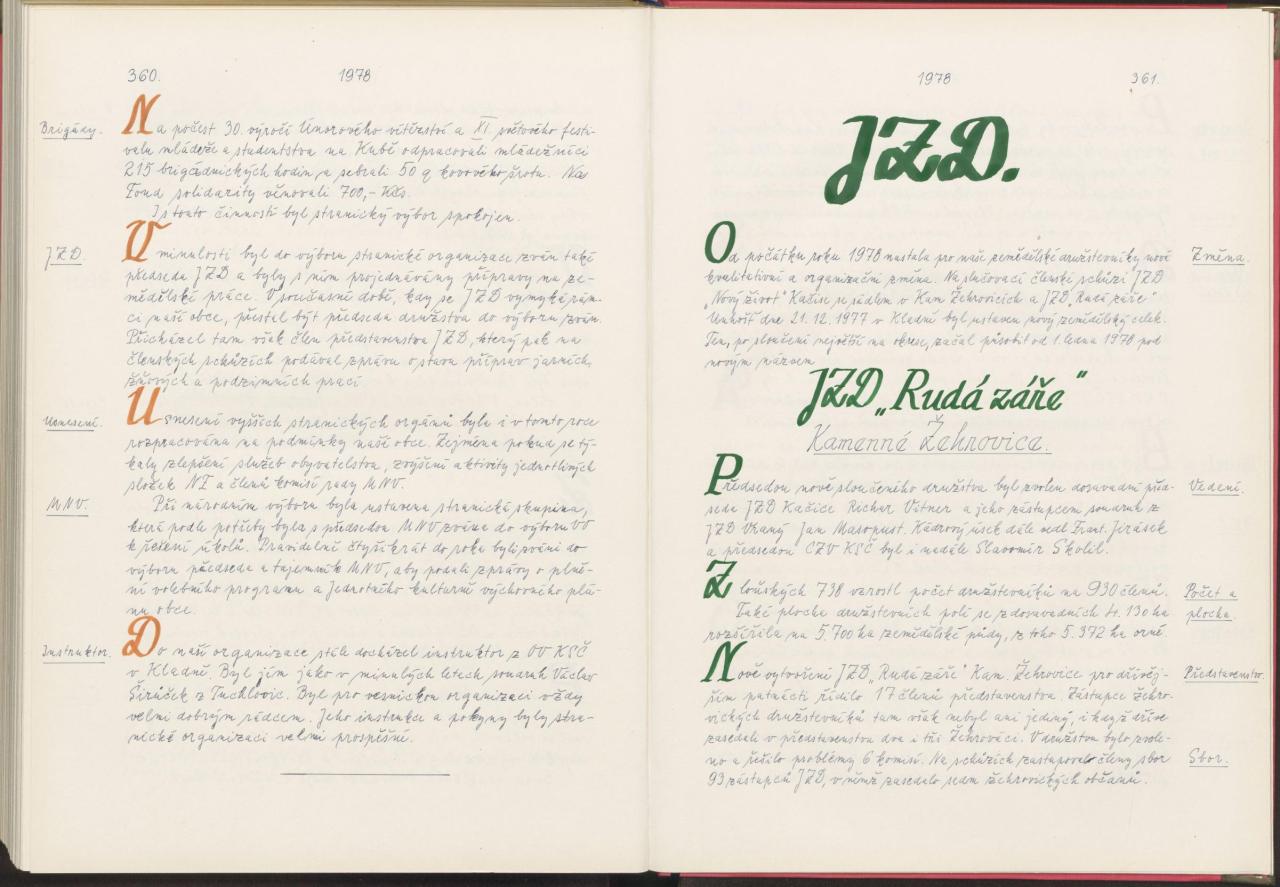 360.
1978
Brigády.
Na počest 30. výročí Únorového vítězství a XI. světového festi-
valu mládeže a studentstva na Kubě odpracovali mládežníci
215 brigádnických hodin a sebrali 50 q kovového šrotu. Na
Fond solidarity věnovali 700,- Kčs.
I s touto činností byl stranický výbor spokojen.
JZD.
V minulosti byl do výboru stranické organizace zván také
předseda JZD a byly s ním projednávány přípravy na ze-
mědělské práce. V současné době, kdy se JZD vymyká rám-
ci naší obce, přestal být předseda družstva do výboru zván.
Přicházel tam však člen představenstva JZD, který pak na
členských schůzích podával zprávu o stavu příprav jarních,
žňových a podzimních prací.
Usnesení.
Usnesení vyšších stranických orgánů byla i v tomto roce
rozpracována na podmínky naší obce. Zejména pokud se tý-
kaly zlepšení služeb obyvatelstvu, zvýšení aktivity jednotlivých
složek NF a členů komisí rady MNV.
MNV.
Při národním výboru byla ustavena stranická skupina,
která podle potřeby byla s předsedou MNV zvána do výboru OO
k řešení úkolů. Pravidelně čtyřikrát do roka byli zváni do
výboru předseda a tajemník MNV, aby podali zprávy o plně-
ní volebního programu a Jednotného kulturně výchovného plá-
nu obce.
Instruktor.
Do naší organizace stále docházel instruktor z OV KSČ
v Kladně. Byl jím jako v minulých letech soudruh Václav
Sirůček z Tuchlovic. Byl pro vesnickou organizaci vždy
velmi dobrým rádcem. Jeho instrukce a pokyny byly stra-
nické organizaci velmi prospěšné.
1978
361.
JZD.
Od počátku roku 1978 nastala pro naše zemědělské družstevníky nová
kvalitativní a organizační změna. Na slučovací členské schůzi JZD
„Nový život" Kačice se sídlem v Kam. Žehrovicích a JZD „Rudá záře"
Unhošť dne 21. 12. 1977 v Kladně byl ustaven nový zemědělský celek.
Ten, po sloučení největší na okrese, začal působit od 1. ledna 1978 pod
novým názvem
Změna.
JZD „Rudá záře"
Kamenné Žehrovice.
Předsedou nově sloučeného družstva byl zvolen dosavadní před-
seda JZD Kačice Richar Vitner a jeho zástupcem soudruh z
JZD Vraný Jan Masopust. Kádrový úsek dále vedl Frant. Jirásek
a předsedou CZV KSČ byl i nadále Slavomír Skolil.
Vedení.
Z loňských 738 vzrostl počet družstevníků na 930 členů.
Také plocha družstevních polí se z dosavadních 4. 130 ha
rozšířila na 5.700 ha zemědělské půdy, z toho 5. 372 ha orné.
Počet a
plocha.
Nově vytvořené JZD „Rudá záře" Kam. Žehrovice pro dřívěj-
ším patnácti řídilo 17 členů představenstva. Zástupce žehro-
vických družstevníků tam však nebyl ani jediný, i když dříve
zasedali v představenstvu dva i tři Žehrováci. V družstvu bylo zvole-
no a řešilo problémy 6 komisí. Na schůzích zastupovalo členy sbor
93 zástupců JZD, v němž zasedalo sedm žehrovických občanů.
Představenstvo.
Sbor.